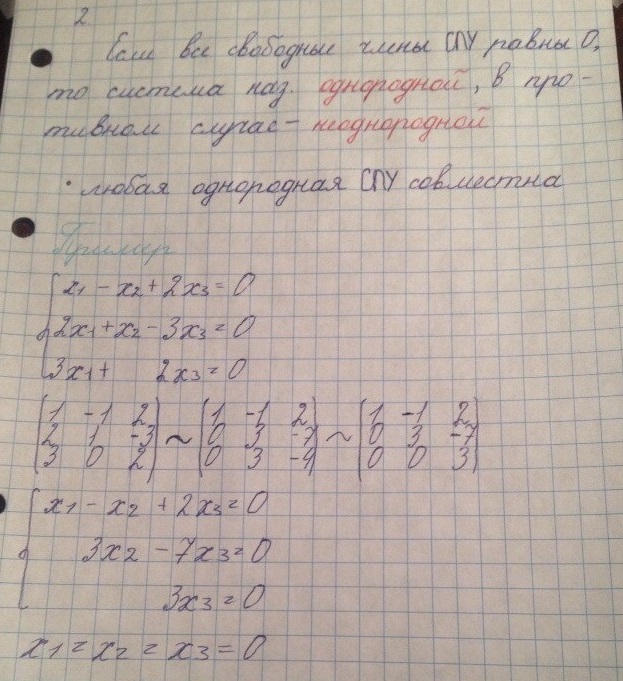 2
Если все свободные члены СЛУ равны 0,
то система наз. однородной, в про-
тивном случае - неоднородной
• любая однородная СЛУ совместна
Пример
x₁ - x₂ + 2x₃ = 0
2x₁ + x₂ - 3x₃ = 0
3x₁ + 2x₃ = 0
(1 -1 2) (1 -1 2) (1 -1 2)
(2 1 -3) ~ (0 3 -7) ~ (0 3 -7)
(3 0 2) (0 3 -4) (0 0 3)
x₁ - x₂ + 2x₃ = 0
3x₂ - 7x₃ = 0
3x₃ = 0
x₁ = x₂ = x₃ = 0